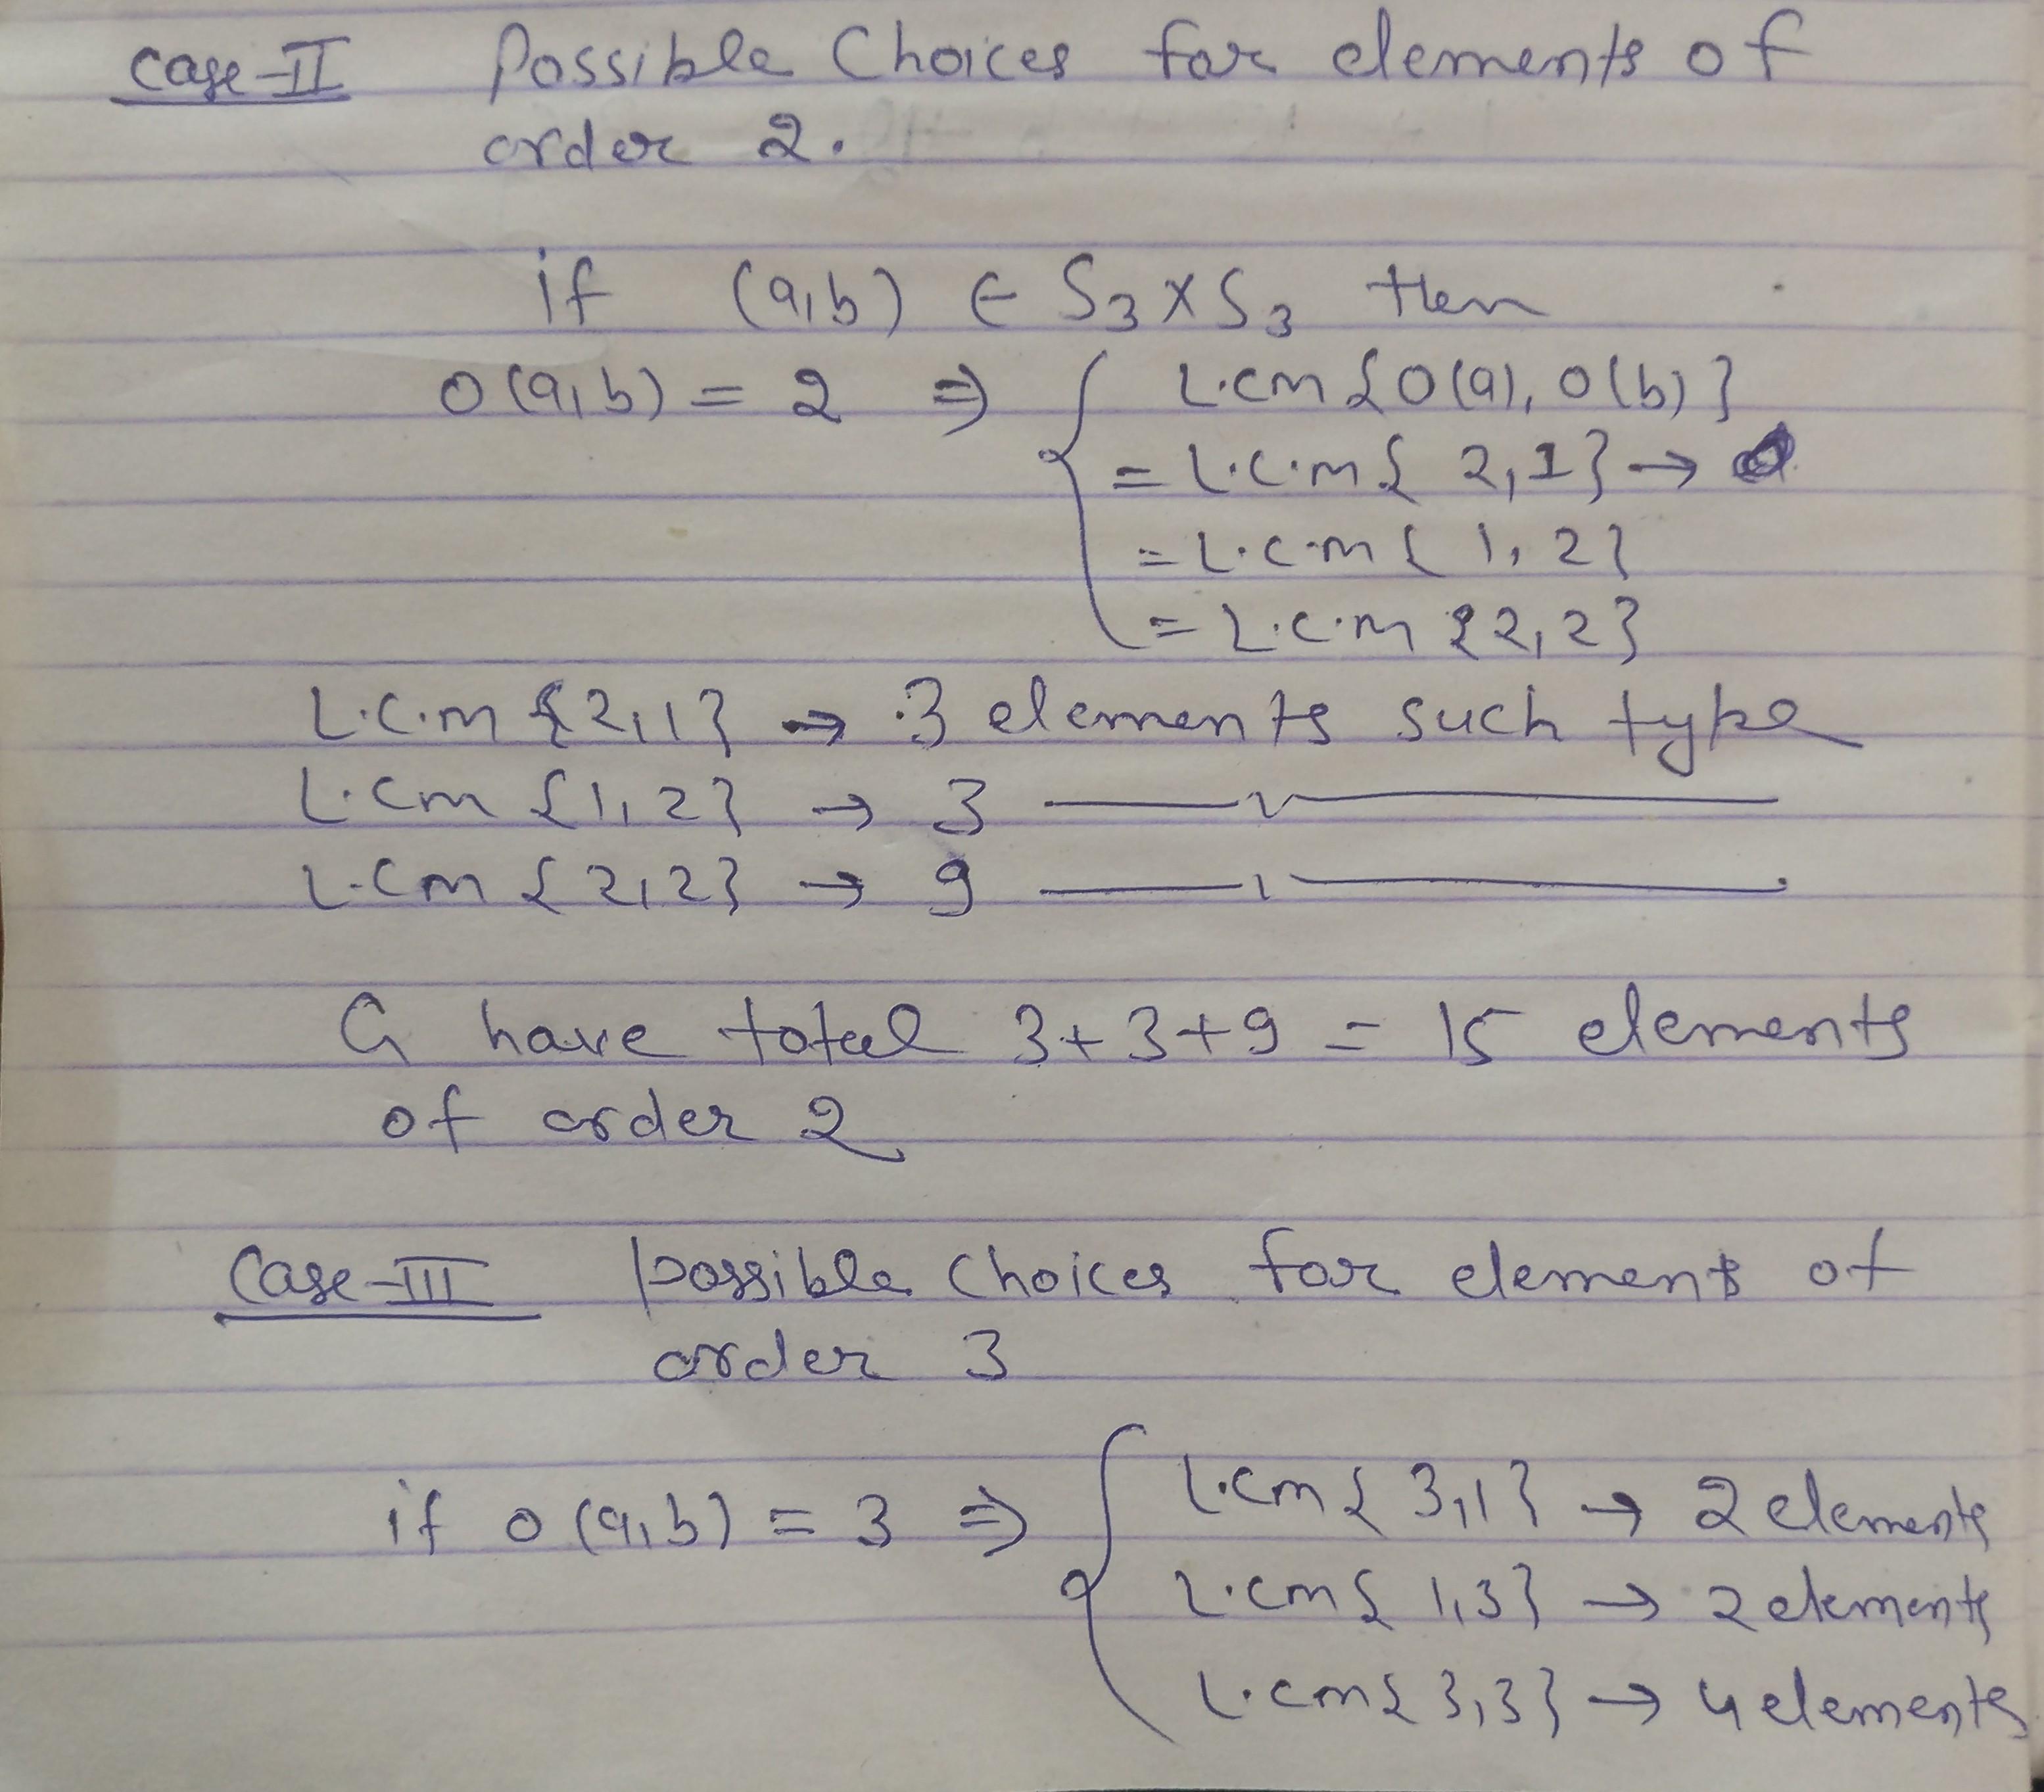 Case-II Possible Choices for elements of
order 2.
if (a,b) ∈ S₃ X S₃ then
O(a,b) = 2 ⇒ { L.cm {O(a), O(b)}
= L.C.m { 2,1} →
= L.C.m { 1, 2}
= L.C.m {2,2}
L.C.m {2,1} → 3 elements such type
L.Cm {1,2} → 3 ——〃——
L.Cm {2,2} → 9 ——〃——
G have total 3+3+9 = 15 elements
of order 2
Case-III possible Choices for elements of
order 3
if O(a,b) = 3 ⇒ { L.cm { 3,1} → 2 elements
L.cm { 1,3} → 2 elements
L.cm { 3,3} → 4 elements